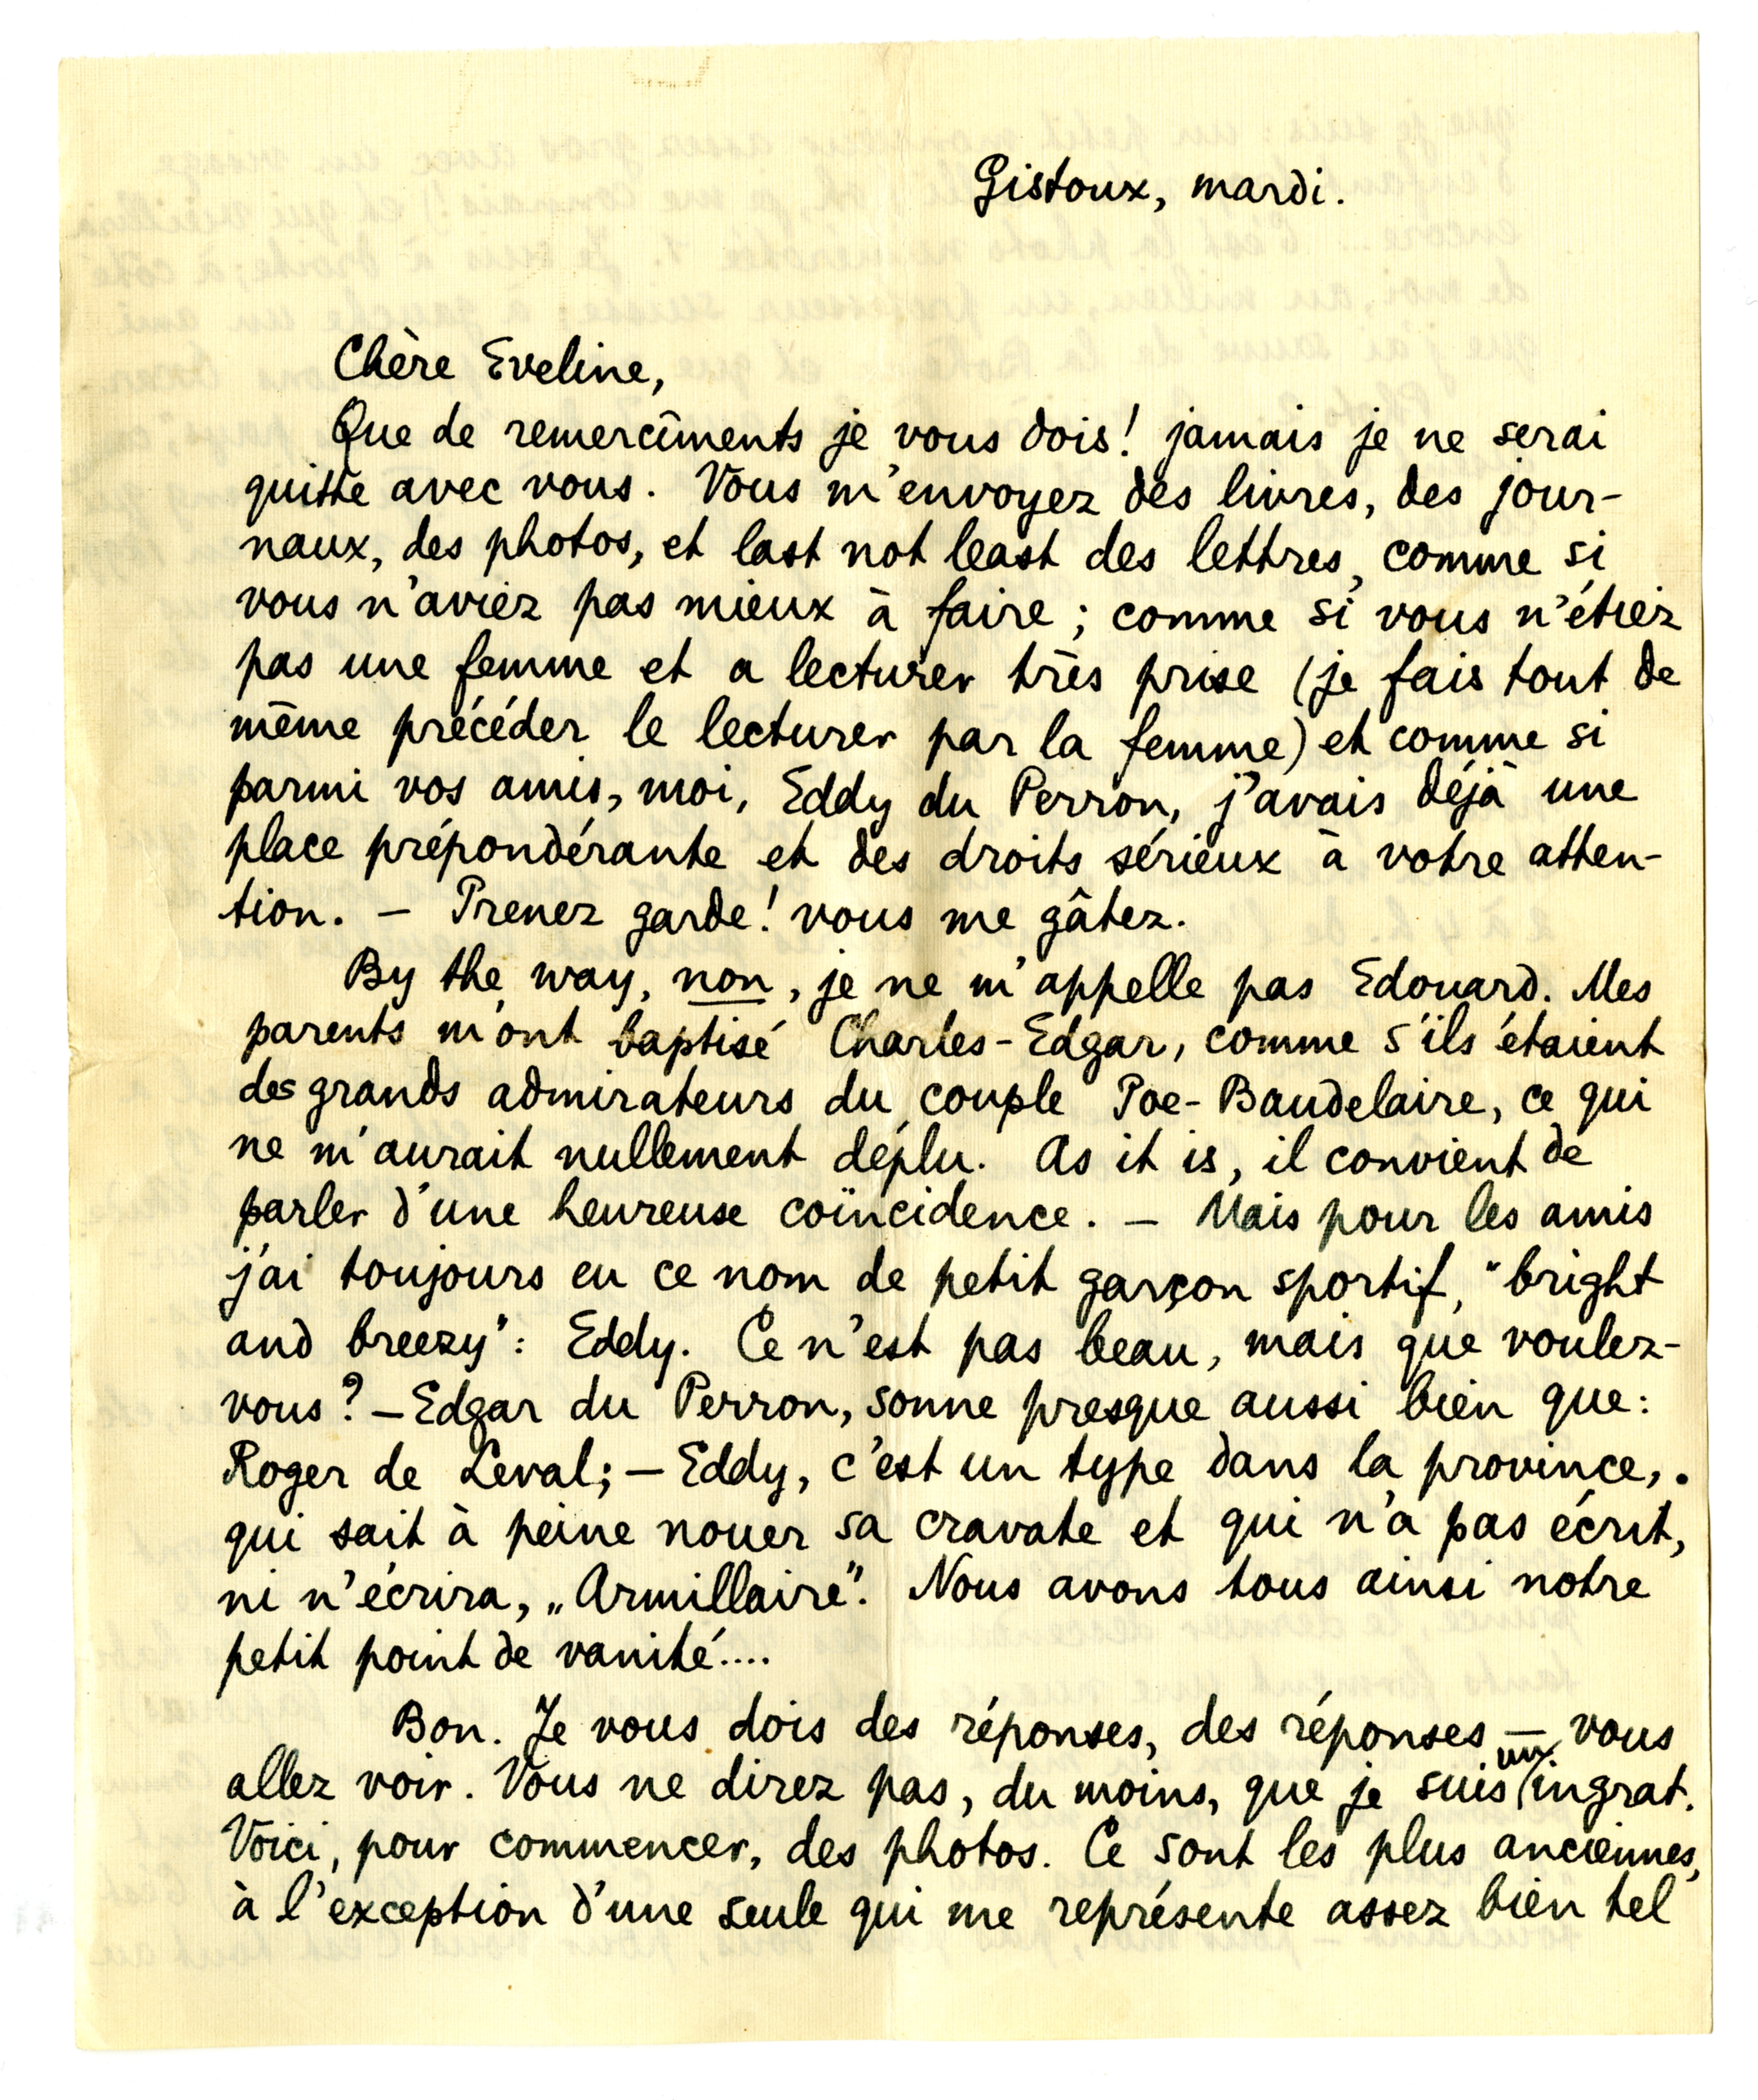 Gistoux, mardi.
Chère Eveline,
Que de remercîments je vous dois! jamais je ne serai
quitte avec vous. Vous m'envoyez des livres, des jour-
naux, des photos, et last not least des lettres, comme si
vous n'aviez pas mieux à faire; comme si vous n'étiez
pas une femme et a lecturer très prise (je fais tout de
même précéder le lecturer par la femme) et comme si
parmi vos amis, moi, Eddy du Perron, j'avais déjà une
place prépondérante et des droits sérieux à votre atten-
tion. – Prenez garde! vous me gâtez.
By the way, non, je ne m'appelle pas Edouard. Mes
parents m'ont baptisé Charles-Edgar, comme s'ils étaient
des grands admirateurs du couple Poe-Baudelaire, ce qui
ne m'aurait nullement déplu. As it is, il convient de
parler d'une heureuse coïncidence. – Mais pour les amis
j'ai toujours eu ce nom de petit garçon sportif, "bright
and breezy": Eddy. Ce n'est pas beau, mais que voulez-
vous? – Edgar du Perron, sonne presque aussi bien que:
Roger de Leval; – Eddy, c'est un type dans la province,.
qui sait à peine nouer sa cravate et qui n'a pas écrit,
ni n'écrira, „Armillaire". Nous avons tous ainsi notre
petit point de vanité....
Bon. Je vous dois des réponses, des réponses – vous
allez voir. Vous ne direz pas, du moins, que je suis un ingrat.
Voici, pour commencer, des photos. Ce sont les plus anciennes,
à l'exception d'une seule qui me représente assez bien tel